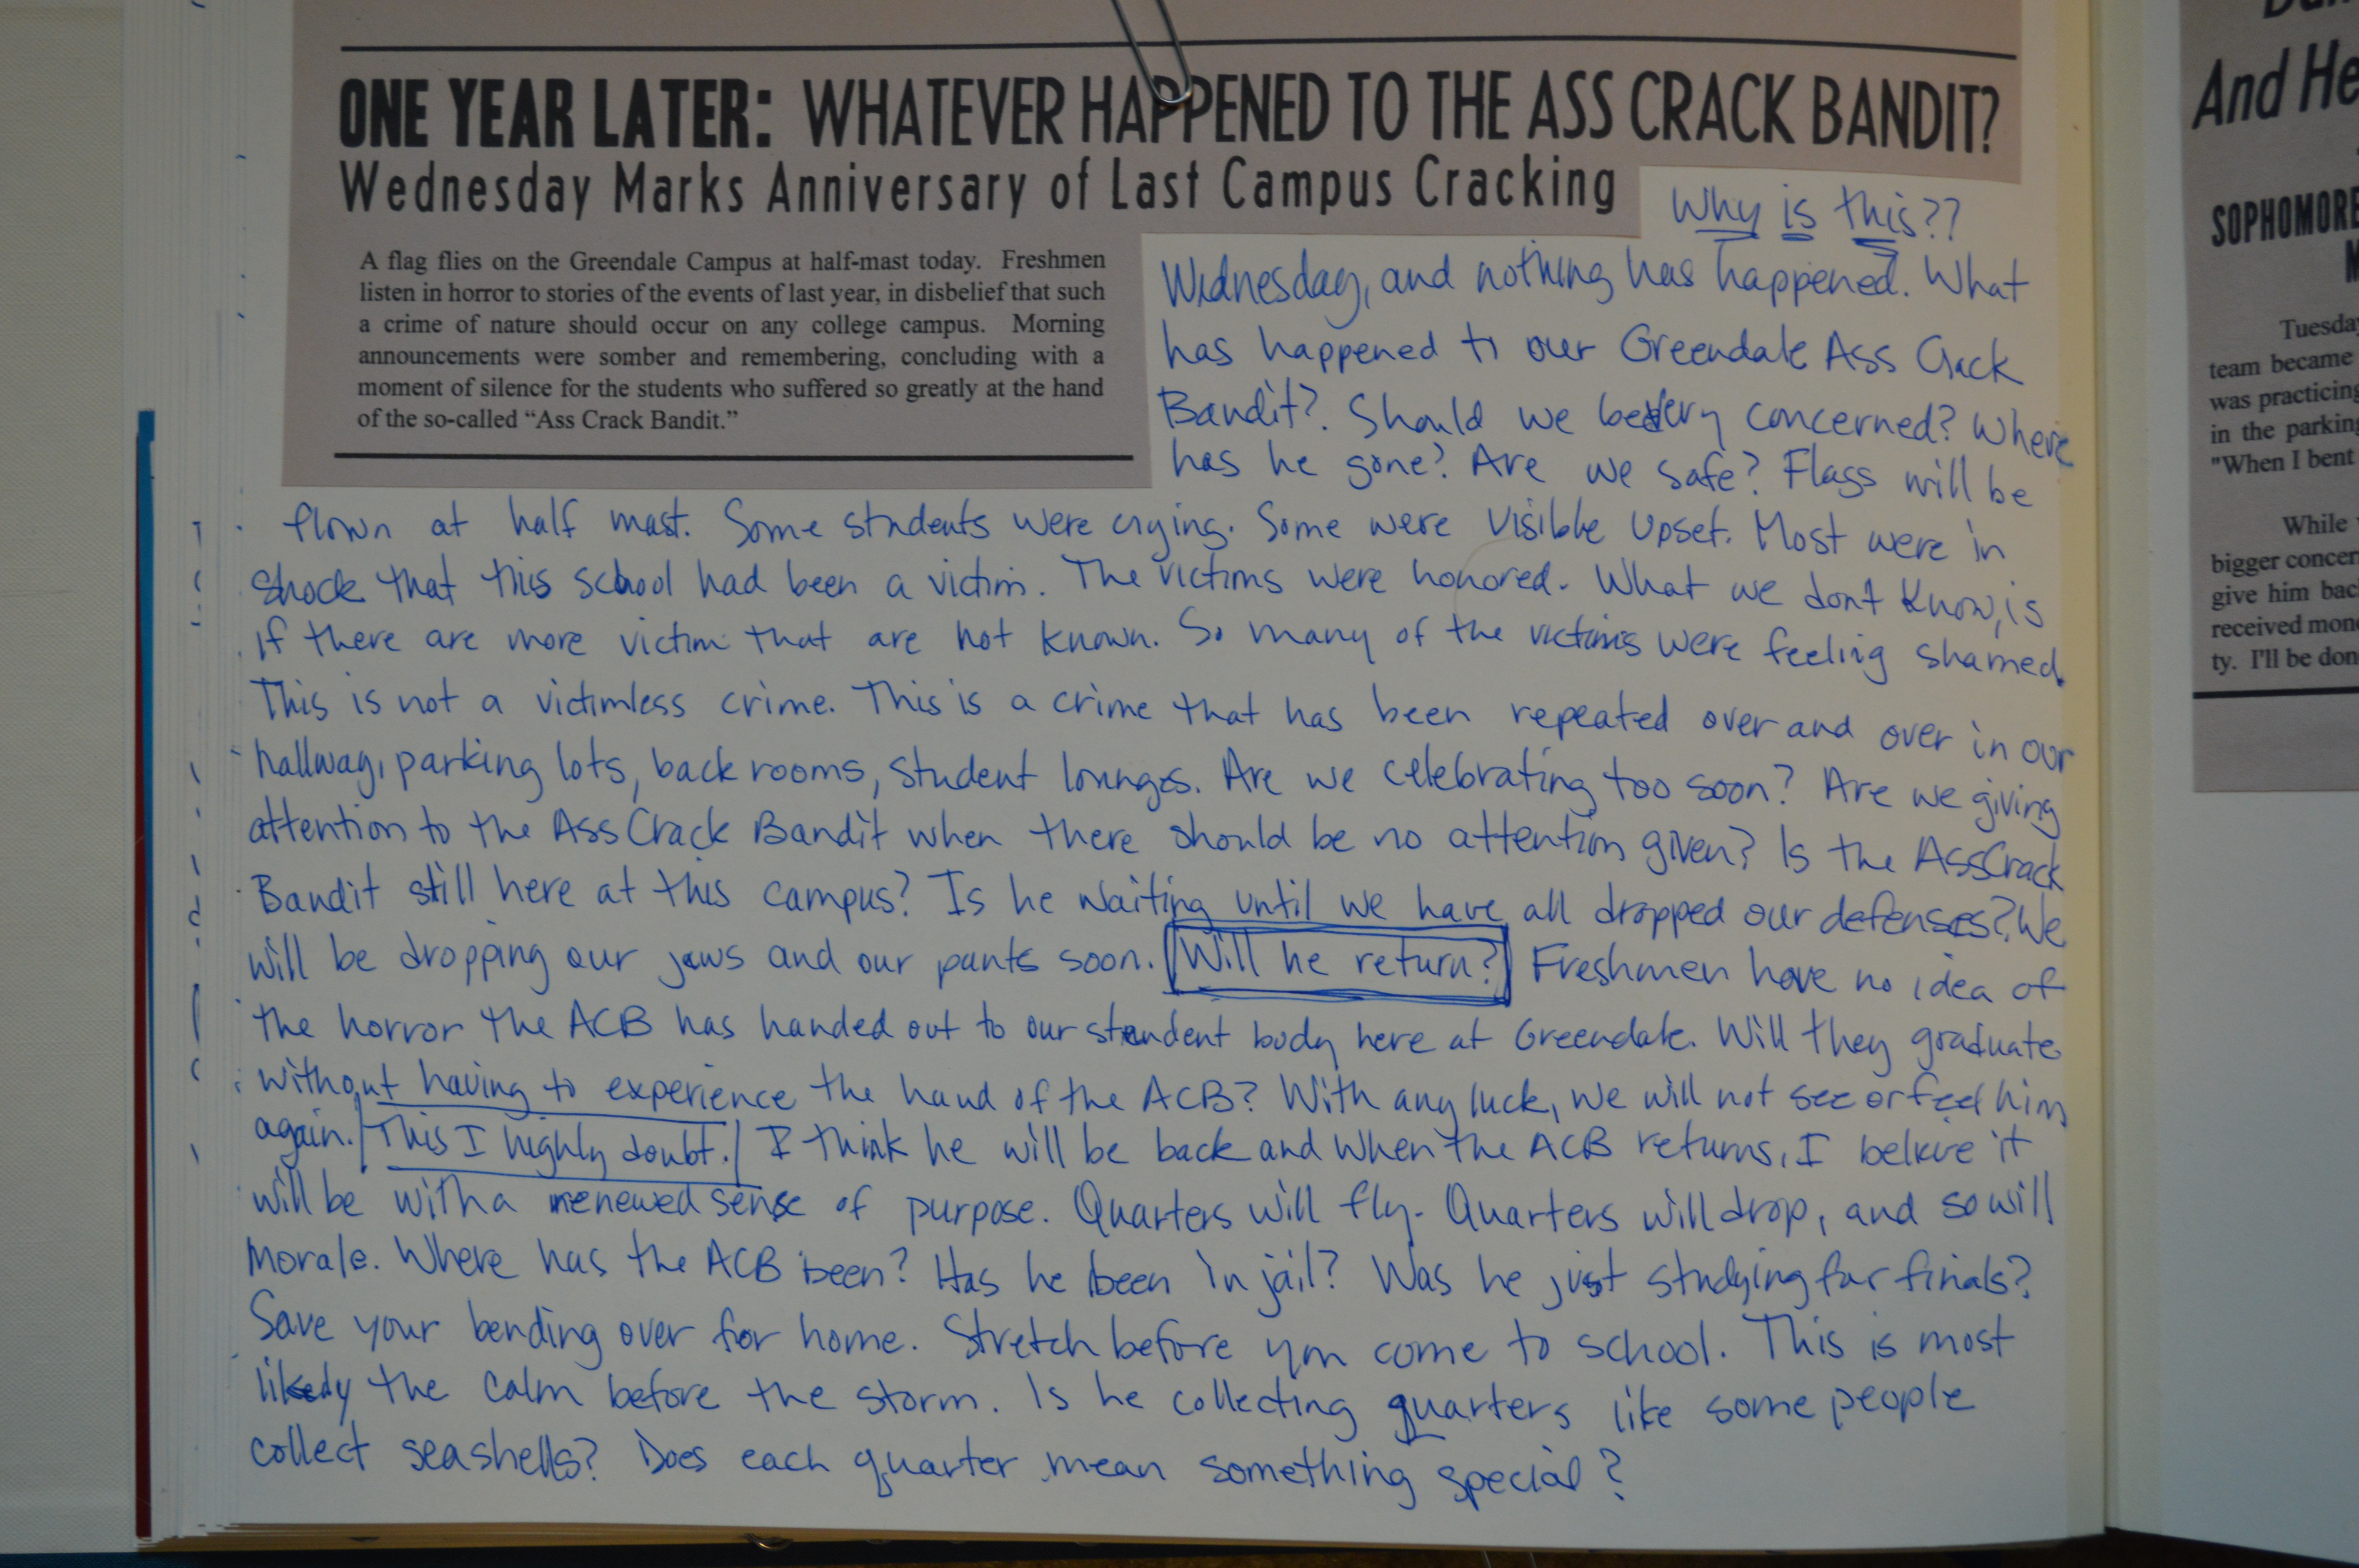 ONE YEAR LATER: WHATEVER HAPPENED TO THE ASS CRACK BANDIT?
Wednesday Marks Anniversary of Last Campus Cracking
A flag flies on the Greendale Campus at half-mast today. Freshmen
listen in horror to stories of the events of last year, in disbelief that such
a crime of nature should occur on any college campus. Morning
announcements were somber and remembering, concluding with a
moment of silence for the students who suffered so greatly at the hand
of the so-called “Ass Crack Bandit.”
Why is this??
Wednesday, and nothing has happened. What
has happened to our Greendale Ass Crack
Bandit? Should we be very concerned? Where
has he gone? Are we safe? Flags will be
flown at half mast. Some students were crying. Some were visible upset. Most were in
shock that this school had been a victim. The victims were honored. What we dont know, is
if there are more victim that are not known. So many of the victims were feeling shamed.
This is not a victimless crime. This is a crime that has been repeated over and over in our
hallway, parking lots, back rooms, student lounges. Are we celebrating too soon? Are we giving
attention to the Ass Crack Bandit when there should be no attention given? Is the AssCrack
Bandit still here at this campus? Is he waiting until we have all dropped our defenses? We
will be dropping our jaws and our pants soon. Will he return? Freshmen have no idea of
the horror the ACB has handed out to our student body here at Greendale. Will they graduate
without having to experience the hand of the ACB? With any luck, we will not see or feel him
again. This I highly doubt. I think he will be back and when the ACB returns, I belive it
will be with a renewed sense of purpose. Quarters will fly. Quarters will drop, and so will
morale. Where has the ACB been? Has he been in jail? Was he just studying for finals?
Save your bending over for home. Stretch before you come to school. This is most
likely the calm before the storm. Is he collecting quarters like some people
collect seashells? Does each quarter mean something special?
And He
SOPHOMORE
Tuesday
team became
was practicing
in the parking
"When I bent
While
bigger concer
give him bac
received mon
ty. I'll be don